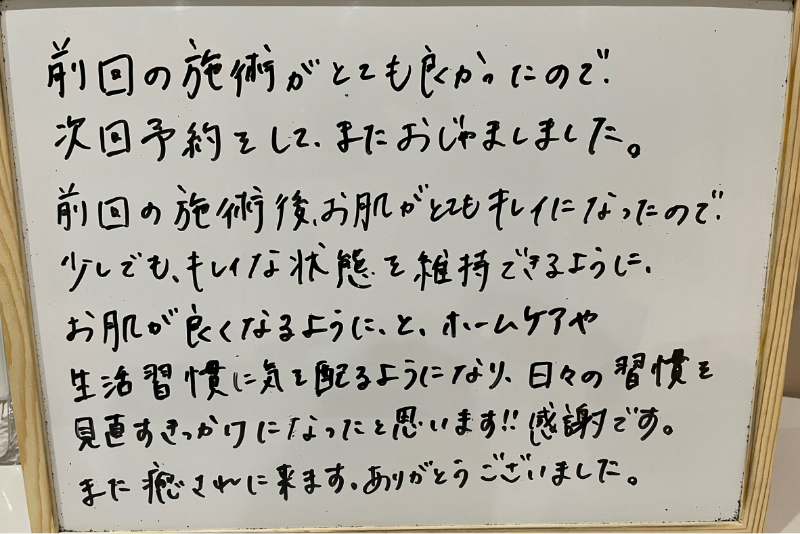 前回の施術がとても良かったので、
次回予約をして、またおじゃましました。
前回の施術後、お肌がとてもキレイになったので、
少しでも、キレイな状態を維持できるように、
お肌が良くなるように、と、ホームケアや
生活習慣に気を配るようになり、日々の習慣を
見直すきっかけになったと思います!!感謝です。
また癒されに来ます。ありがとうございました。